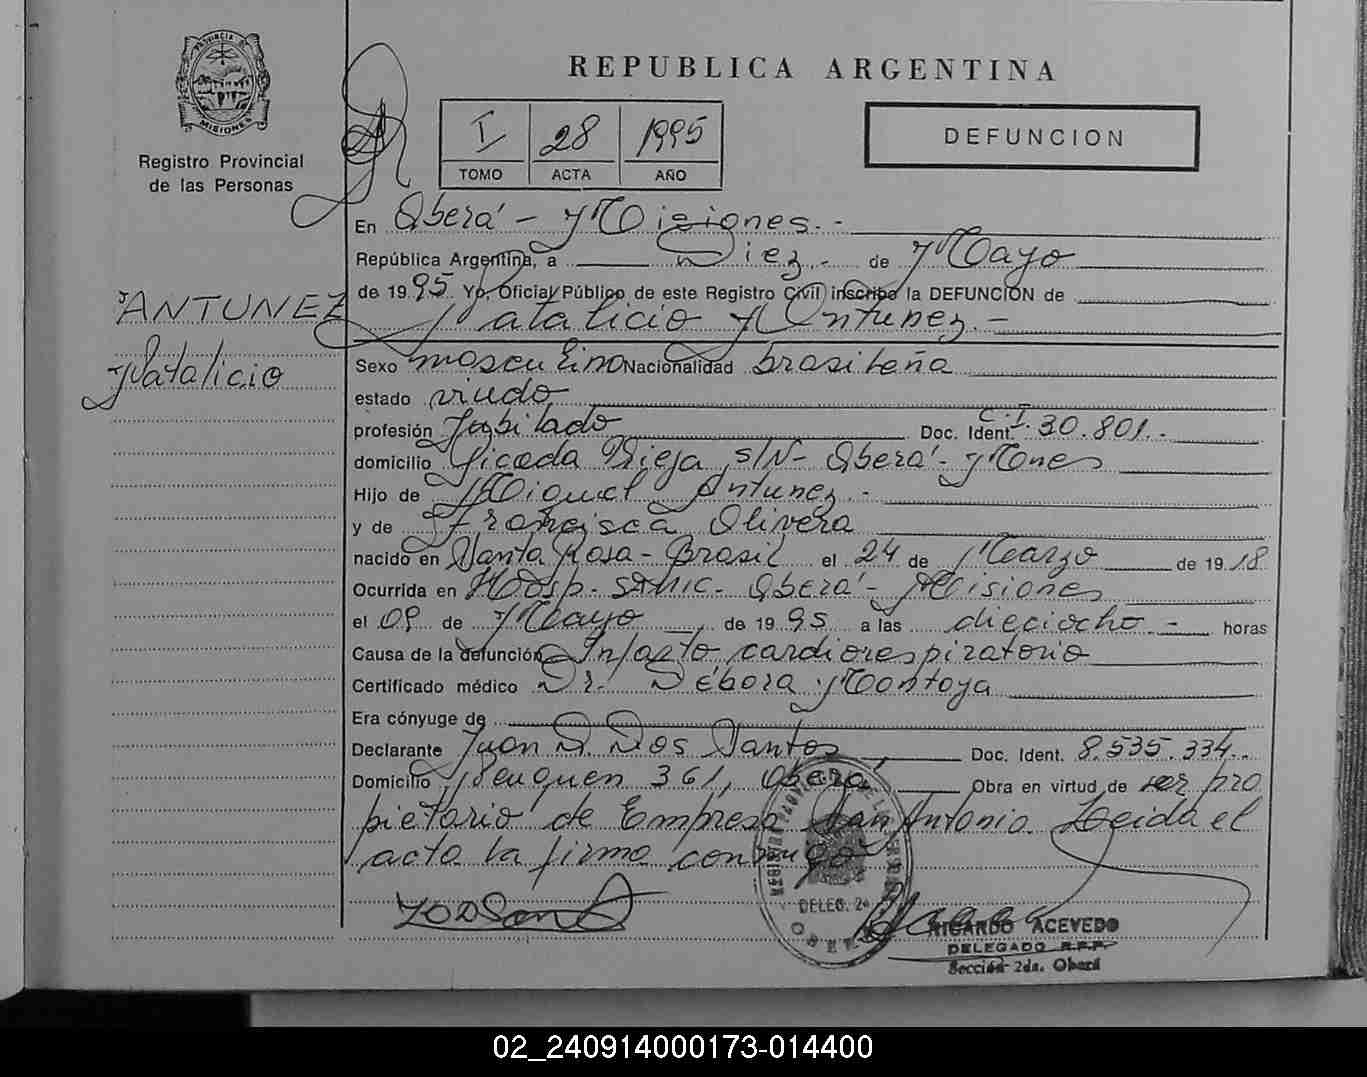 REPUBLICA ARGENTINA
PROVINCIA DE
MISIONES
Registro Provincial
de las Personas
I 28 1995
TOMO ACTA AÑO
DEFUNCION
En Oberá - Misiones.-
República Argentina, a Diez.- de Mayo
de 1995 Yo, Oficial Público de este Registro Civil inscribo la DEFUNCION de
ANTUNEZ
Natalicio
Natalicio Antunez.-
Sexo masculino Nacionalidad brasileña
estado viudo
profesión Jubilado Doc. Ident. C.I. 30.801.-
domicilio Picada Vieja s/N- Oberá- Mnes
Hijo de Miguel Antunez.-
y de Francisca Olivera
nacido en Santa Rosa - Brasil el 24 de Marzo de 1918
Ocurrida en Hosp. SAMIC- Oberá- Misiones
el 09 de Mayo de 1995 a las dieciocho.- horas
Causa de la defunción Infarto cardiorespiratorio
Certificado médico Dr. Débora Montoya
Era cónyuge de
Declarante Juan D. Dos Santos Doc. Ident. 8.535.334.-
Domicilio Neuquen 361, Oberá, Obra en virtud de ser pro
pietario de Empresa San Antonio. Leida el
acta la firma conmigo
DELEG. 2a
OBERA
RICARDO ACEVEDO
DELEGADO R.P.P.
Sección 2da. Oberá
02_240914000173-014400